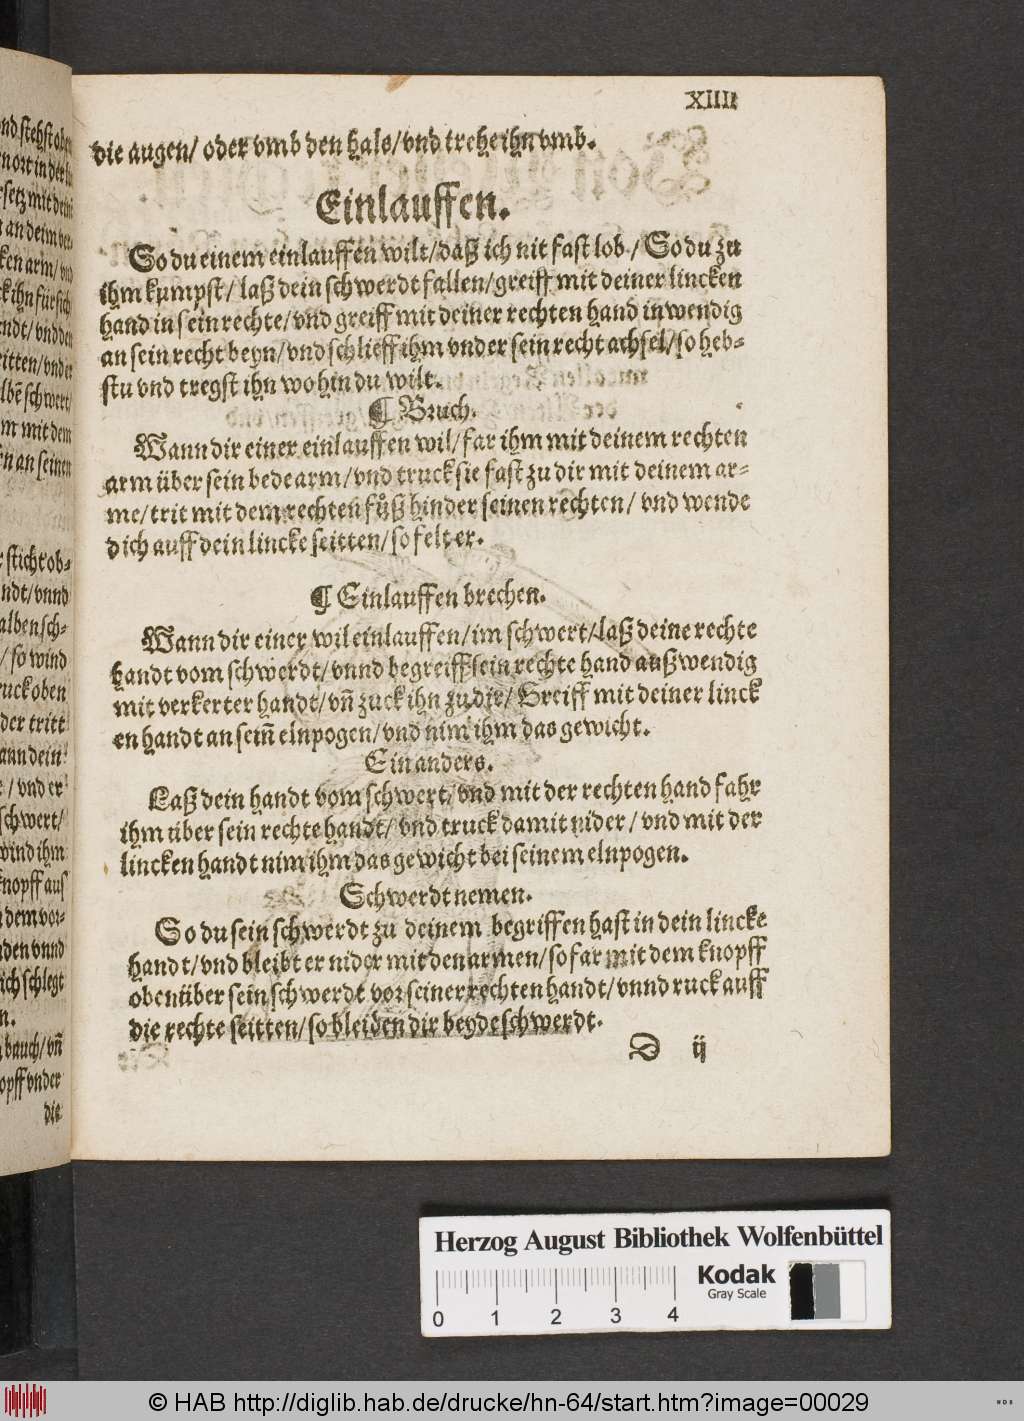 nd stehst oben
n ort in der
setz mit dem
n an deim vor-
ken arm/ vnd
ck ihn für sich
endt/ vnd den
ritten/ vnder
lbē schwert/
m mit dem
n an seinen
r sticht ob-
ndt/ vnnd
alben sch-
/ so wind
ruck oben
der tritt
ann dein
e/ vnd er
schwert/
wind ihm
knopff aus
n dem vor-
nden vnnd
ich schlegt
n.
bauch/ vñ
opff vnder
die
XIIII
die augen/ oder vmb den hals/ vnd trehe ihn vmb.
Einlauffen.
So du einem einlauffen wilt/ daß ich nit fast lob/ So du zu
ihm kumpst/ laß dein schwerdt fallen/ greiff mit deiner lincken
hand in sein rechte/ vnd greiff mit deiner rechten hand inwendig
an sein recht beyn/ vnd schlieff ihm vnder sein recht achsel/ so heb-
stu vnd tregst ihn wo hin du wilt.
¶ Bruch.
Wann dir einer einlauffen wil/ far ihm mit deinem rechten
arm über sein bede arm/ vnd truck sie fast zu dir mit deinem ar-
me/ trit mit dem rechten fůß hinder seinen rechten/ vnd wende
dich auff dein lincke seitten/ so felt er.
¶ Einlauffen brechen.
Wann dir einer wil einlauffen/ im schwert/ laß deine rechte
handt vom schwerdt/ vnnd begreiff sein rechte hand außwendig
mit verkerter handt/ vñ zuck ihn zu dir/ Greiff mit deiner linck
en handt an seiñ elnpogen/ vnd nim ihm das gewicht.
Ein anders.
Laß dein handt vom schwert/ vnd mit der rechten hand fahr
ihm über sein rechte handt/ vnd truck damit nider/ vnd mit der
lincken handt nim ihm das gewicht bei seinem elnpogen.
Schwerdt nemen.
So du sein schwerdt zu deinem begriffen hast in dein lincke
handt/ vnd bleibt er nider mit den armen/ so far mit dem knopff
oben über sein schwerdt vor seiner rechten handt/ vnnd ruck auff
die rechte seitten/ so bleiben dir beyde schwerdt.
D ij
Herzog August Bibliothek Wolfenbüttel
Kodak
Gray Scale
0 1 2 3 4
© HAB http://diglib.hab.de/drucke/hn-64/start.htm?image=00029